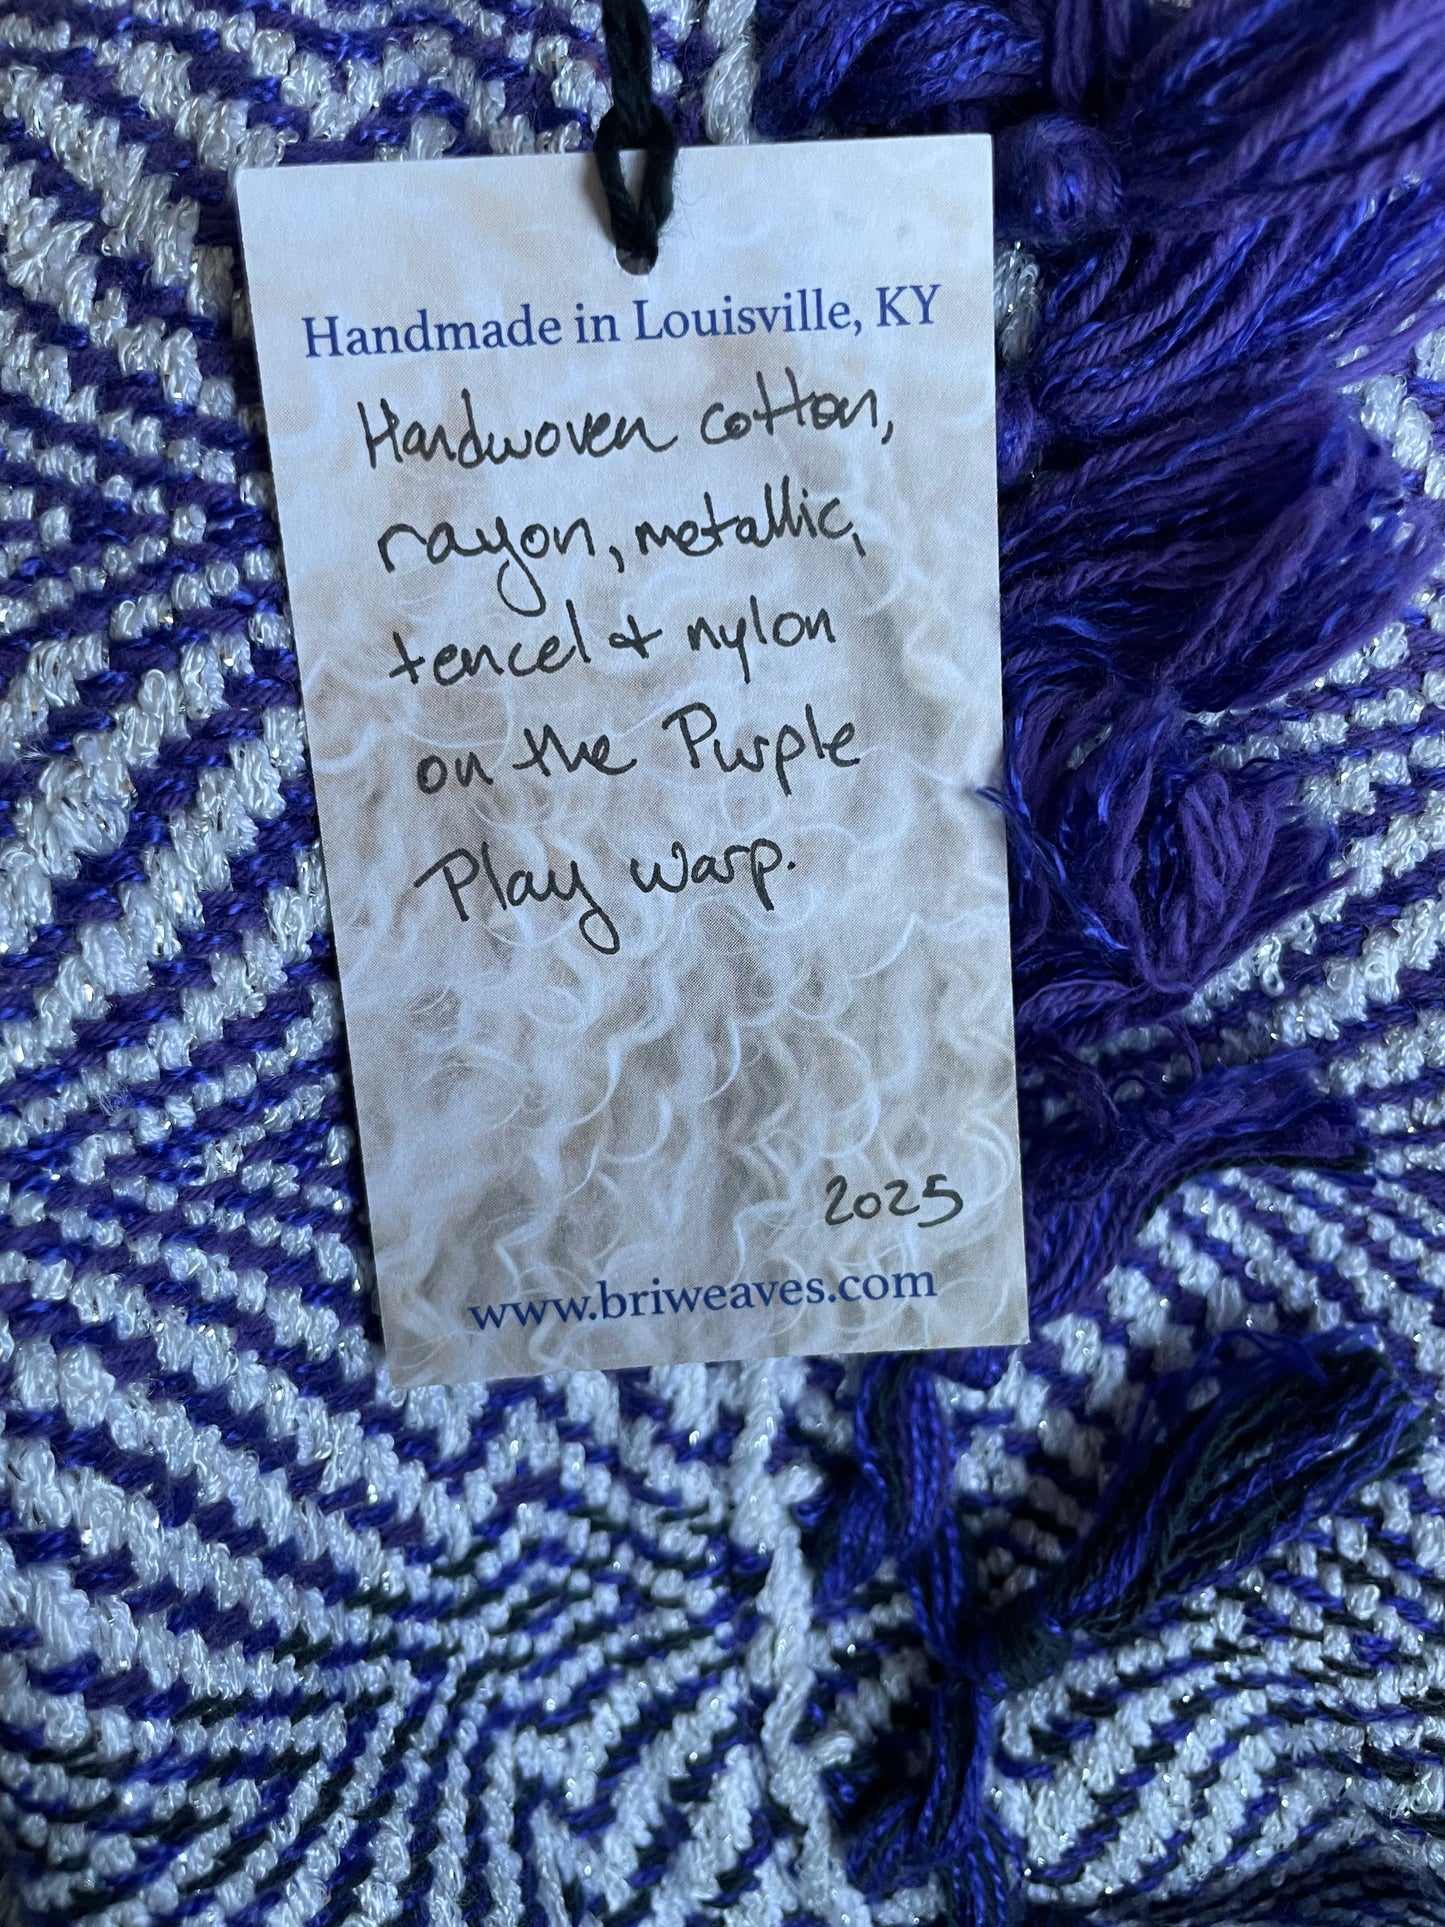 Handmade in Louisville, KY
Handwoven cotton,
rayon, metallic,
tencel + nylon
on the Purple
Play warp.
2025
www.briweaves.com